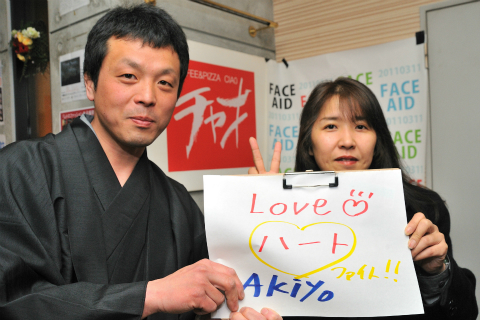 FEE&PIZZA CIAO
チャオ
FACE
AID
20110311
FACE
AID
FACE
AID
Love
ハート
ファイト!!
AKiYo